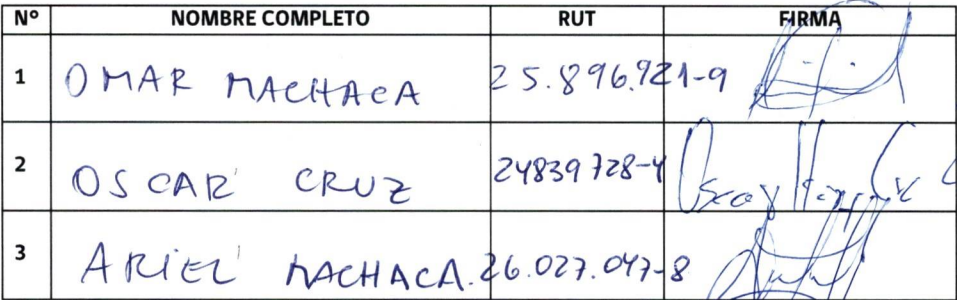 Nº NOMBRE COMPLETO RUT FIRMA
1 OMAR MACHACA 25.896.921-9
2 OSCAR CRUZ 24839728-4 Oscar
3 ARIEL MACHACA. 26.027.047-8